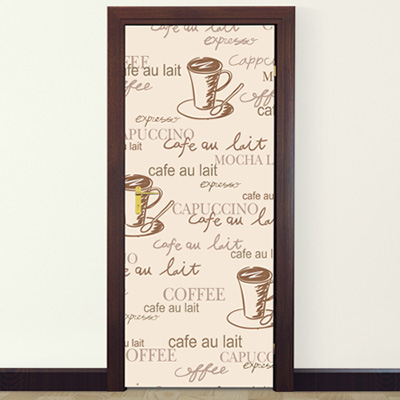 cafe au lait
expresso
COFFEE
Cappuc
cafe au lait
M
coffee
coffee
expresso
CAPUCCINO
cafe au lait
lait
MOCHA L
cafe au lait
expresso
cafe au
CAPUCCINO
cafe au lait
cafe au l
cafe au lait
COFFEE
cafe au lait
expresso
cafe au lait
COFFEE
CAPUCC
coffee
cafe au